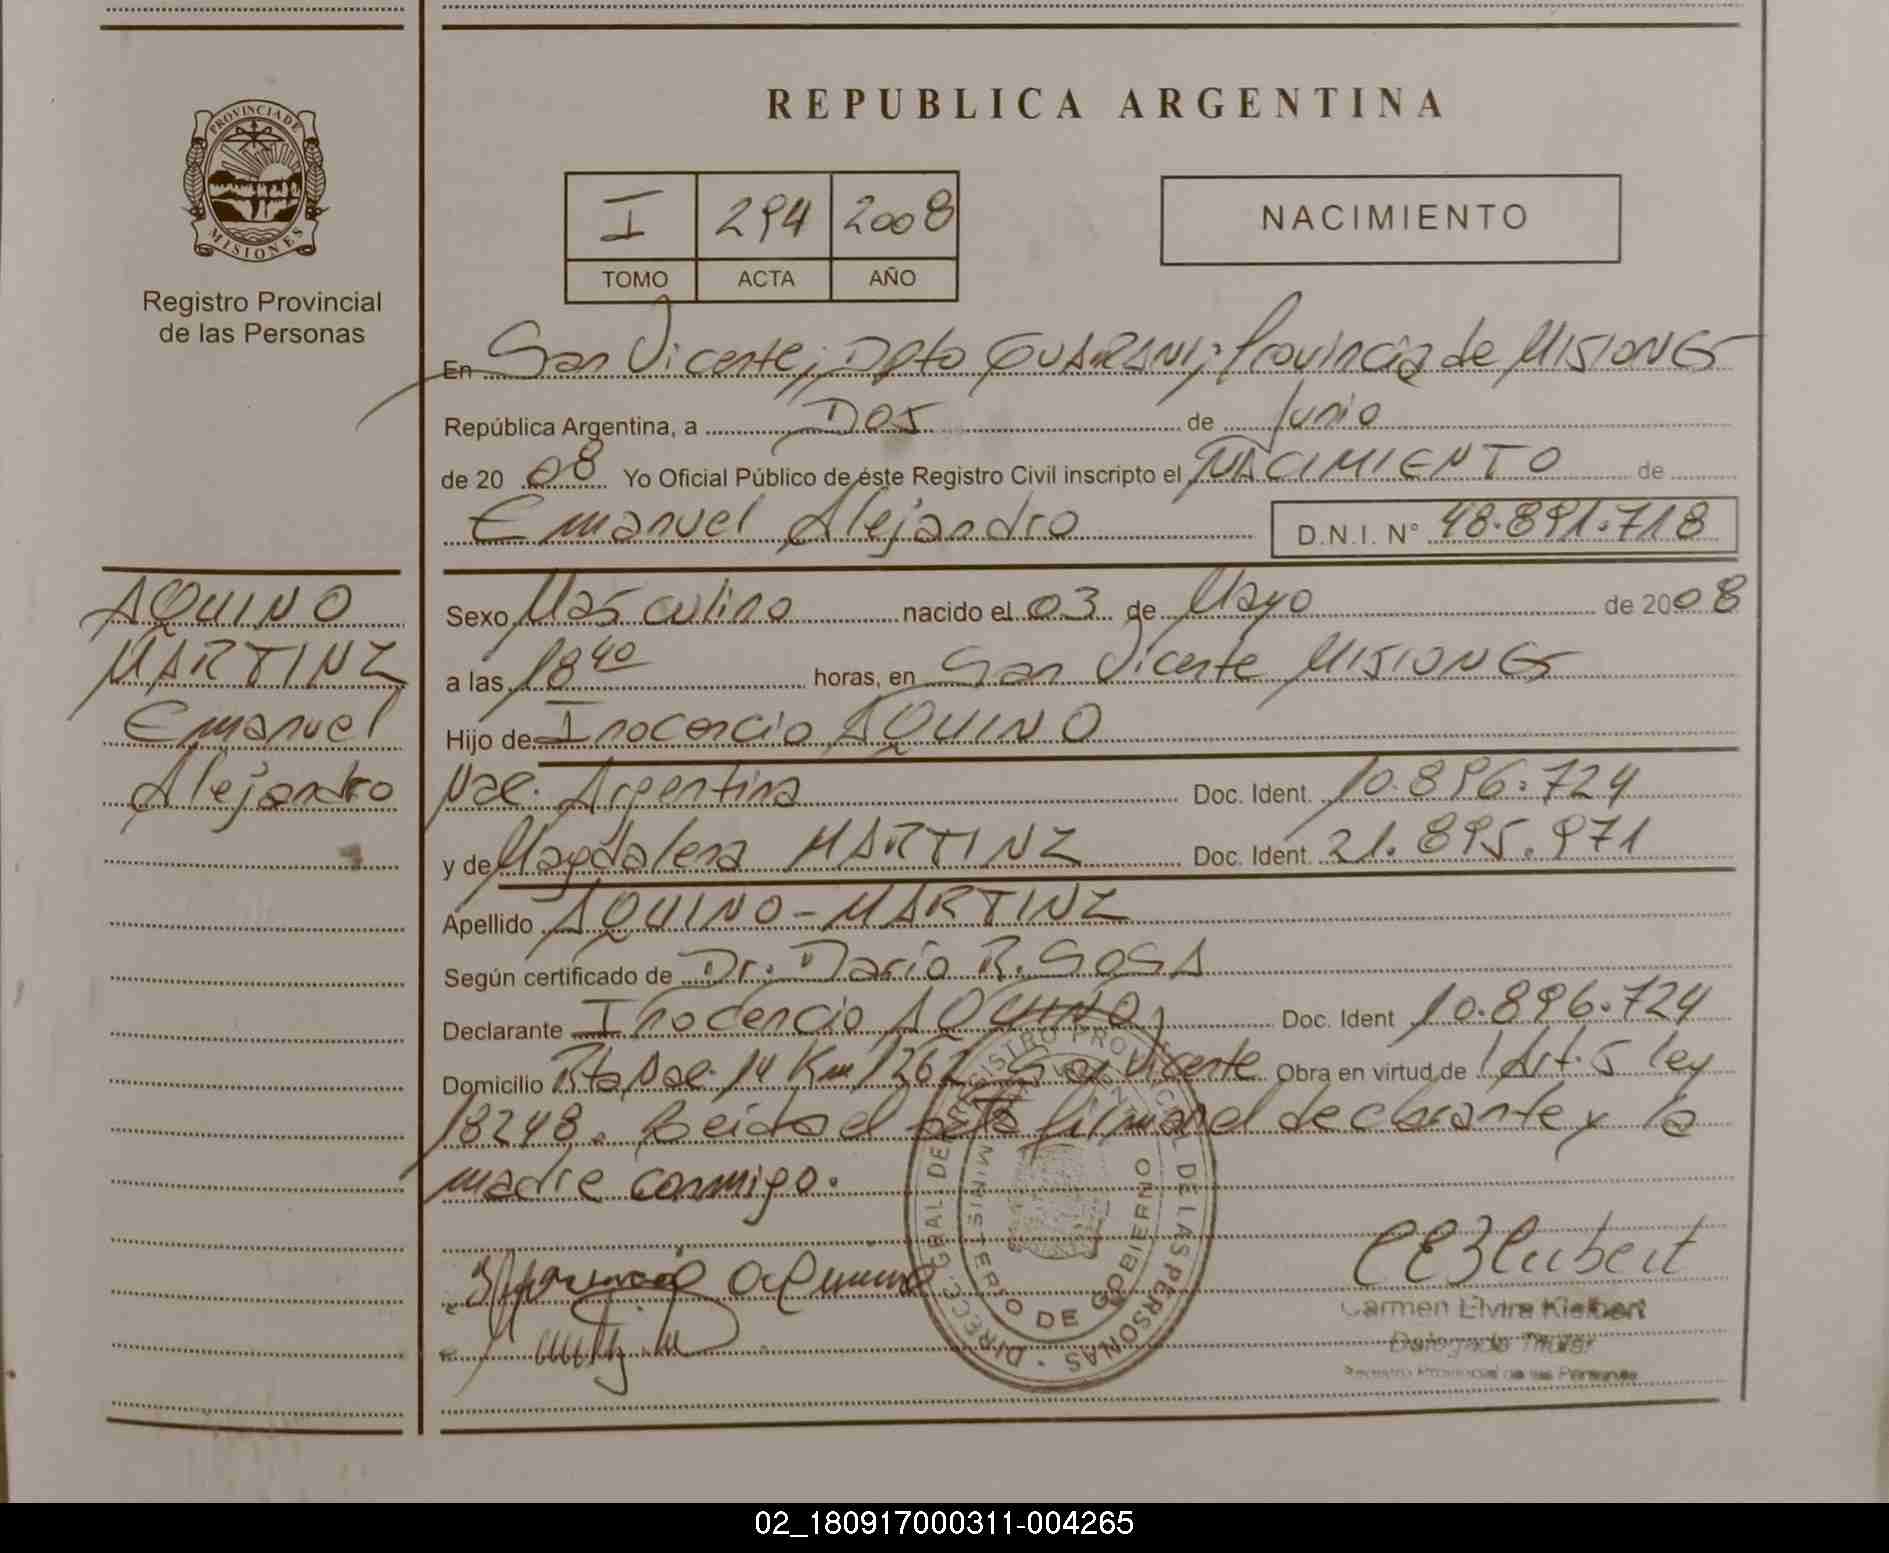 REPUBLICA ARGENTINA
PROVINCIA DE MISIONES
Registro Provincial
de las Personas
I 294 2008
TOMO ACTA AÑO
NACIMIENTO
En San Vicente, Dpto GUARANI, Provincia de MISIONES
República Argentina, a Dos de Junio
de 20 08 Yo Oficial Público de éste Registro Civil inscripto el NACIMIENTO de
Emanuel Alejandro D.N.I. N° 48.891.718
AQUINO
MARTINZ
Emanuel
Alejandro
Sexo Masculino nacido el 03 de Mayo de 2008
a las 18 40 horas, en San Vicente MISIONES
Hijo de Inocencio AQUINO
Nac. Argentina Doc. Ident. 10.896.724
y de Magdalena MARTINZ Doc. Ident. 21.895.971
Apellido AQUINO-MARTINZ
Según certificado de Dr. Dario R. SOSA
Declarante Inocencio AQUINO, Doc. Ident 10.896.724
Domicilio Rta Nac. 14 Km 1262 San Vicente Obra en virtud de Art. 5 ley
18248. Leida el acta firman el declarante y la
madre conmigo.
DIRECC. GRAL DE REGISTRO PROVINCIAL DE LAS PERSONAS
MINISTERIO DE GOBIERNO
Carmen Elvira Kleibert
Delegada Titular
Registro Provincial de las Personas
02_180917000311-004265